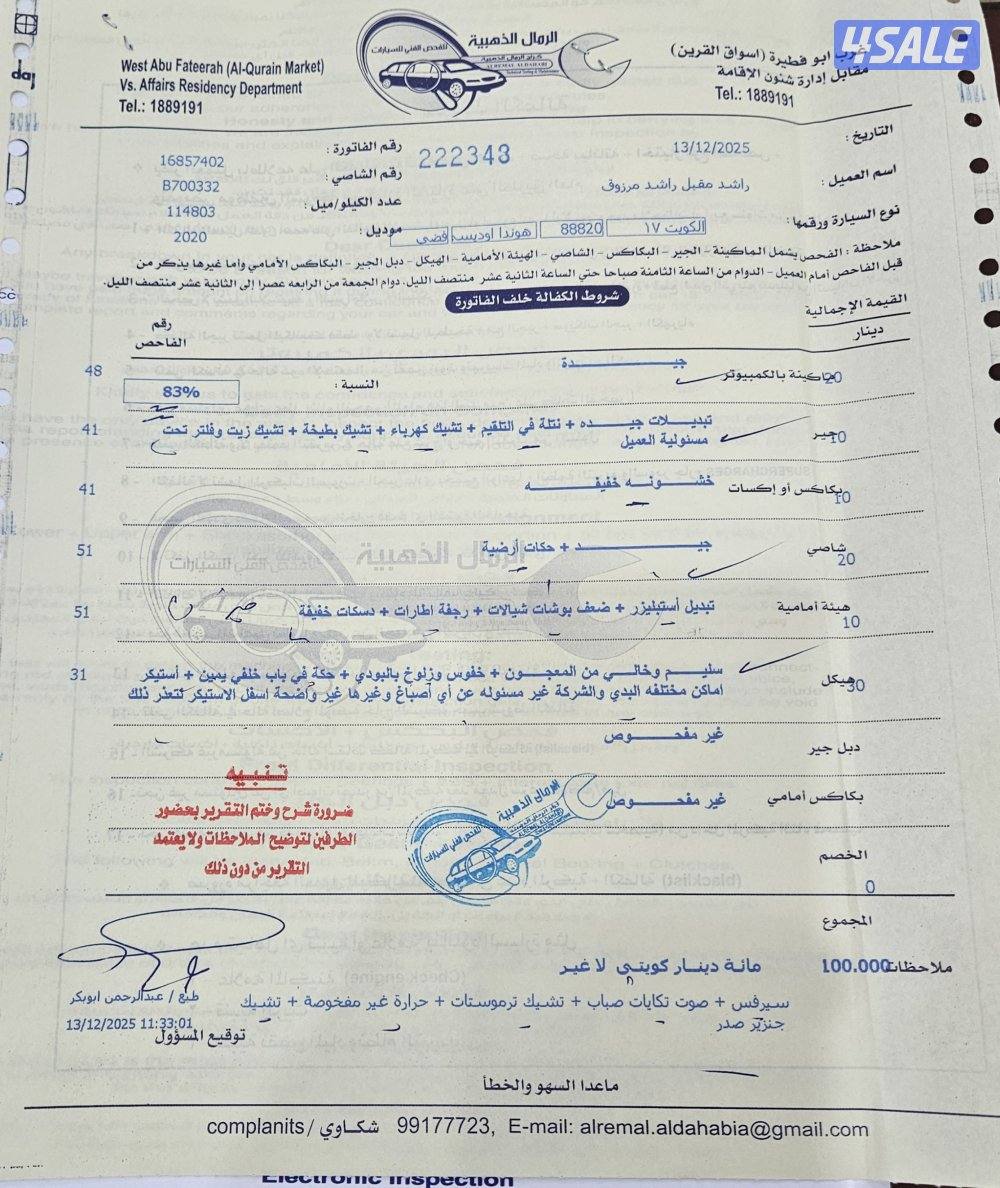 4SALE
غرب ابو فطيرة (اسواق القرين)
مقابل إدارة شئون الإقامة
Tel.: 1889191
الرمال الذهبية
للفحص الفني للسيارات
West Abu Fateerah (Al-Qurain Market)
Vs. Affairs Residency Department
Tel.: 1889191
التاريخ : 13/12/2025
رقم الفاتورة : 16857402
222343
اسم العميل : راشد مقبل راشد مرزوق
رقم الشاصي : B700332
عدد الكيلو/ميل : 114803
نوع السيارة ورقمها : الكويت ١٧ 88820 هوندا اوديسه فضي
موديل : 2020
ملاحظة : الفحص يشمل الماكينة - الجير - البكاكس - الشاصي - الهيئة الأمامية - الهيكل - دبل الجير - البكاكس الأمامي وأما غيرها يذكر من
قبل الفاحص أمام العميل - الدوام من الساعة الثامنة صباحا حتى الساعة الثانية عشر منتصف الليل. دوام الجمعة من الرابعه عصرا إلى الثانية عشر منتصف الليل.
شروط الكفالة خلف الفاتورة
القيمة الإجمالية
دينار
رقم الفاحص
ماكينة بالكمبيوتر 20 جيدة 48
النسبة : 83%
جير 10 تبديلات جيده + نتلة في التلقيم + تشيك كهرباء + تشيك بطيخة + تشيك زيت وفلتر تحت 41
مسئولية العميل
بكاكس أو إكسات 10 خشونه خفيفه 41
شاصي 20 جيد + حكات أرضية 51
هيئة أمامية 10 تبديل أستبليزر + ضعف بوشات شيالات + رجفة اطارات + دسكات خفيفة 51
هيكل 30 سليم وخالي من المعجون + خفوس وزلوخ بالبودي + حكة في باب خلفي يمين + أستيكر 31
اماكن مختلفه البدي والشركة غير مسئوله عن أي أصباغ وغيرها غير واضحة اسفل الاستيكر لتعذر ذلك
دبل جير غير مفحوص
بكاكس أمامي غير مفحوص
تنبيه
ضرورة شرح وختم التقرير بحضور
الطرفين لتوضيح الملاحظات ولا يعتمد
التقرير من دون ذلك
الرمال الذهبية
للفحص الفني للسيارات
الخصم
0
المجموع
100.000 مائة دينار كويتي لا غير
ملاحظات
سيرفس + صوت تكايات صباب + تشيك ترموستات + حرارة غير مفحوصة + تشيك
جنزير صدر
طبع / عبدالرحمن ابوبكر
13/12/2025 11:33:01
توقيع المسؤول
ماعدا السهو والخطأ
complanits / شكاوي 99177723, E-mail: alremal.aldahabia@gmail.com
Electronic Inspection